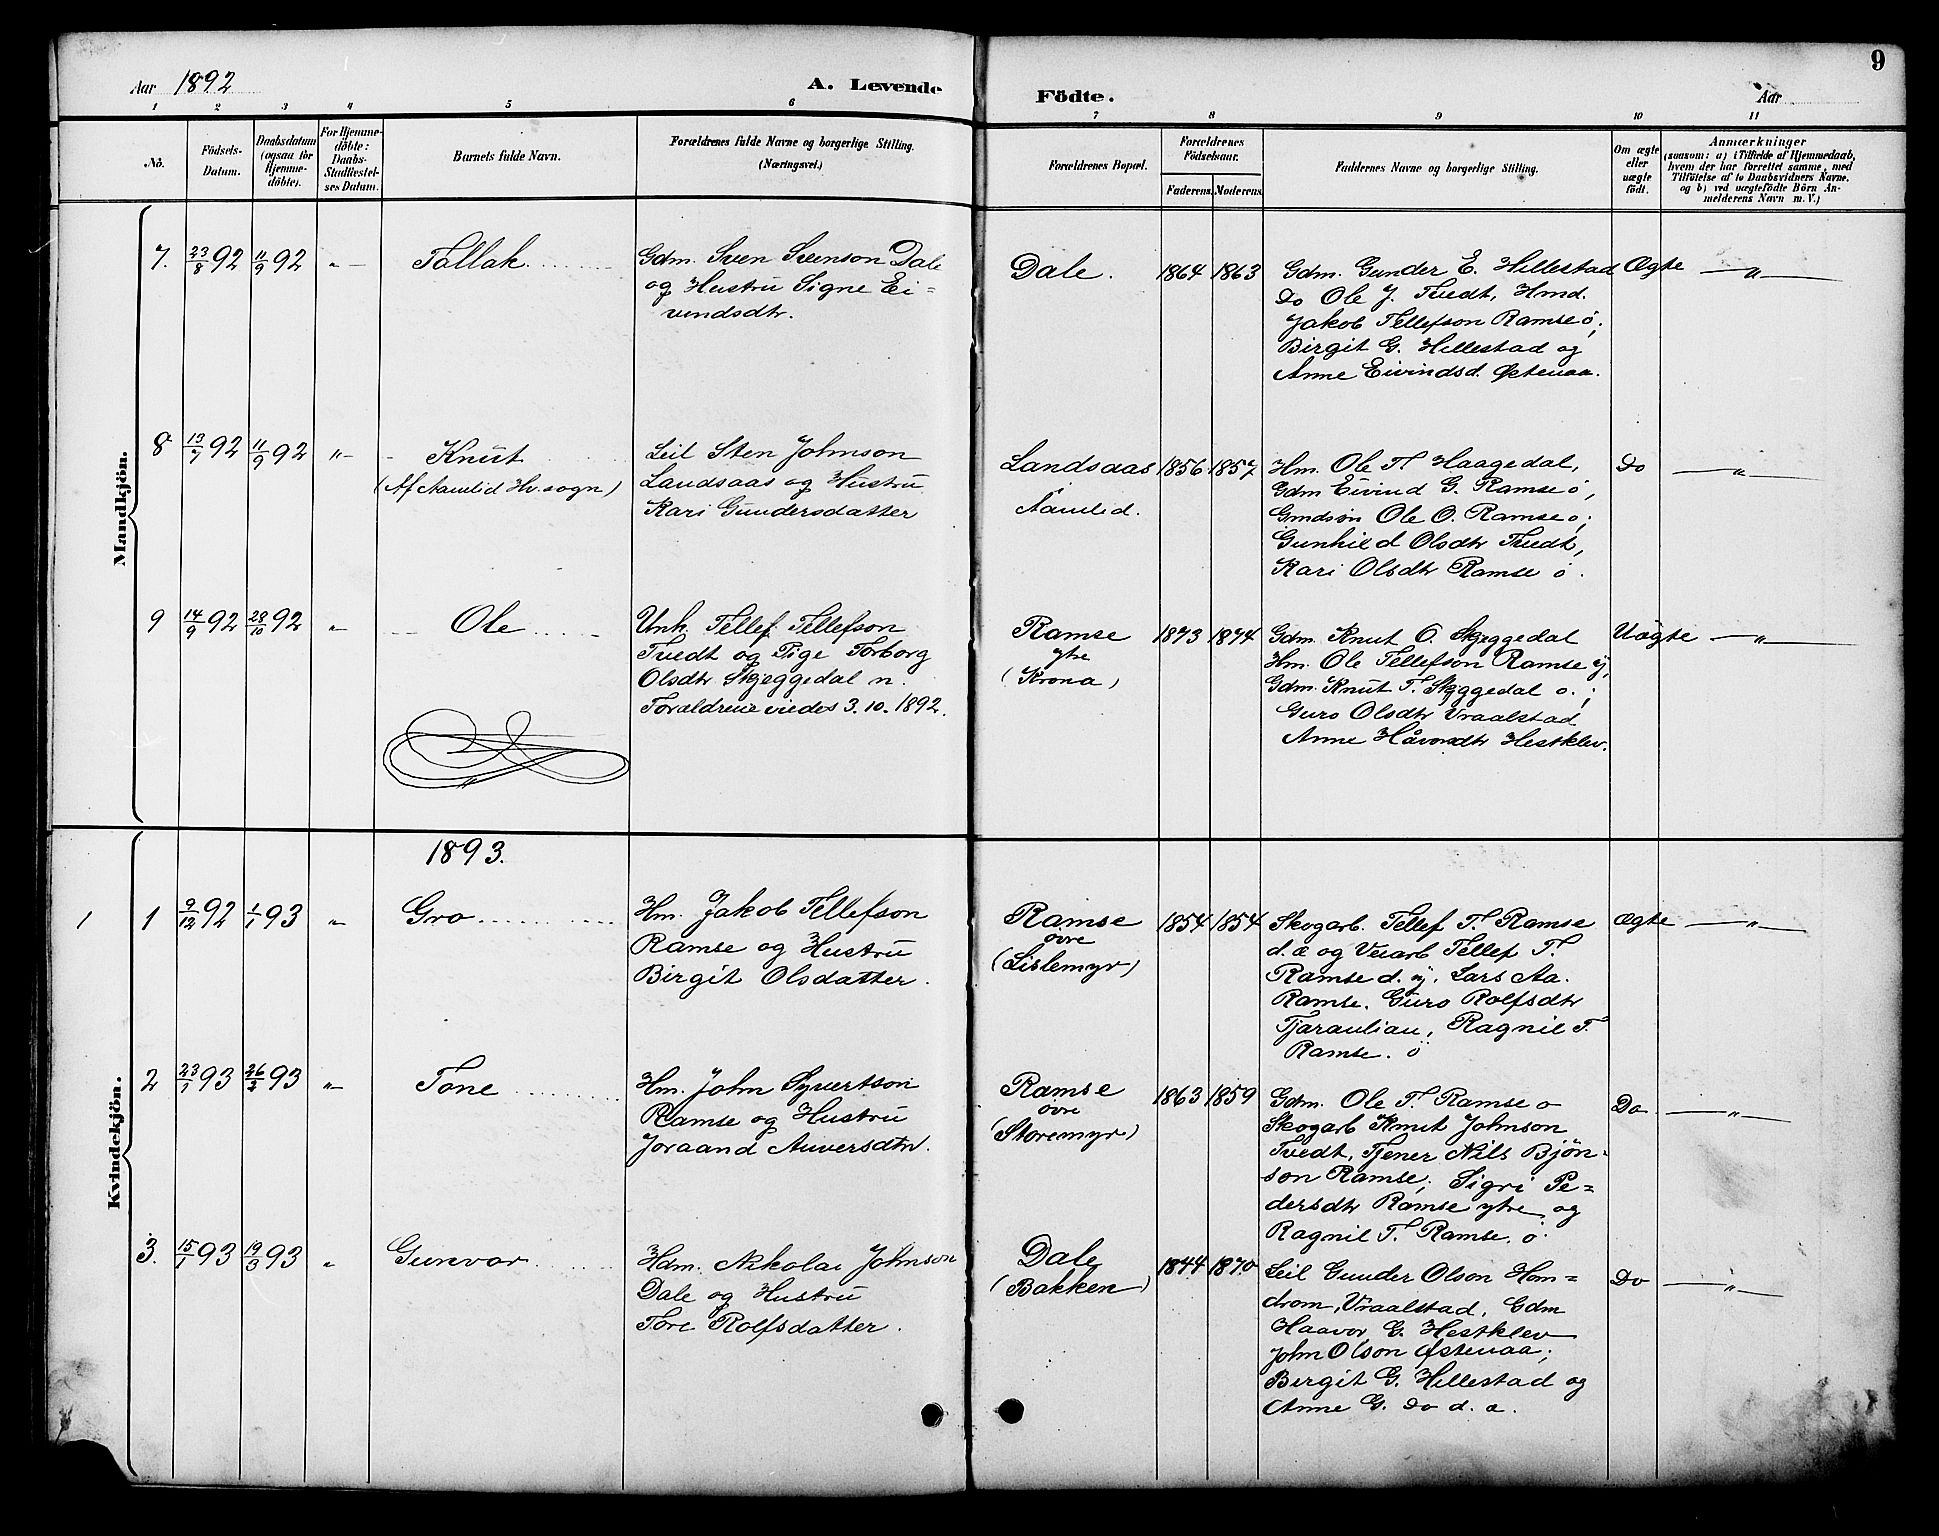 9
Aar 1892
A. Levende
Födte.
Aar
1 2 3 4 5 6 7 8 9 10 11
No.
Födsels-
Datum.
Daabsdatum
(ogsaa for
Hjemme-
döbte).
For Hjemme-
döbte:
Daabs-
Stadfæstel-
ses Datum.
Barnets fulde Navn.
Forældrenes fulde Navne og borgerlige Stilling.
(Næringsvei.)
Forældrenes Bopæl.
Forældrenes
Födselsaar.
Faderens. Moderens.
Faddernes Navne og borgerlige Stilling.
Om ægte
eller
uægte
födt.
Anmærkninger
(saasom: a) i Tilfælde af Hjemmedaab,
hvem der har forrettet samme, med
Tilföielse af to Daabsvidners Navne.
og b) ved uægtefödte Börn An-
melderens Navn m. V.)
Mandkjön.
7. 23/8 92 11/9 92 „ Tallak
Gdm. Sven Svenson Dale
og Hustru Signe Ei=
vindsdtr.
Dale. 1864 1863
Gdm. Gunder E. Hillestad
Do Ole J. Tvedt, Hmd.
Jakob Tellefson Ramse ö;
Birgit G. Hillestad og
Anne Eivindsd. Østenaa.
Ægte „
8 13/7 92 11/9 92 „ Knut
(Af Aamlid Hv. sogn)
Leil Sten Johnson
Landsaas og Hustru
Kari Gundersdatter
Landsaas
Aamlid.
1856 1857
Hm. Ole T. Haagedal,
Gdm Eivind G. Ramse ö,
Gmdsön Ole O. Ramse ö;
Gunhild Olsdtr Tvedt,
Kari Olsdtr Ramse ö.
Do „
9 14/9 92 28/10 92 „ Ole
Unk. Tellef Tellefson
Tvedt og Pige Torborg
Olsdtr Skjeggedal n.
Forældrene viedes 3.10.1892.
Ramse
ytre
(Krona)
1873 1874
Gdm. Knut O. Skjeggedal
Hm. Ole Tellefson Ramse y,
Gdm. Knut T. Skjeggedal o.;
Guro Olsdtr Vraalstad
Anne Håvorsdtr Hestklev.
Uægte „
Kvindekjön.
1893.
1 1 9/12 92 1/1 93 „ Gro
Hm. Jakob Tellefson
Ramse og Hustru
Birgit Olsdatter.
Ramse
övre
(Lislemyr)
1854 1854
Skogarb. Tellef T. Ramse
d. æ og Veiarb Tellef T.
Ramse d. y. Lars Aa.
Ramse. Guro Rolfsdtr
Tjaraulian, Ragnil T.
Ramse. ö
Ægte „
2 23/1 93 26/2 93 „ Tone
Hm. John Syvertson
Ramse og Hustru
Joraand Anversdtr.
Ramse
övre
(Storemyr)
1863 1859
Gdm. Ole T. Ramse o
Skogarb Knut Johnson
Tvedt, Tjener Nils Bjön-
son Ramse; Sigri Pe=
dersdtr Ramse ytre og
Ragnil T. Ramse. ö.
Do „
3. 15/1 93 19/3 93 „ Gunvor
Hdm. Nikolai Johnson
Dale og Hustru
Tore Rolfsdatter.
Dale
(Bakken)
1844 1870
Leil Gunder Olson Hom=
drom, Vraalstad, Gdm
Haavor G. Hestklev
John Olson Østenaa;
Birgit G. Hillestad og
Anne G. Do d. æ.
Do „